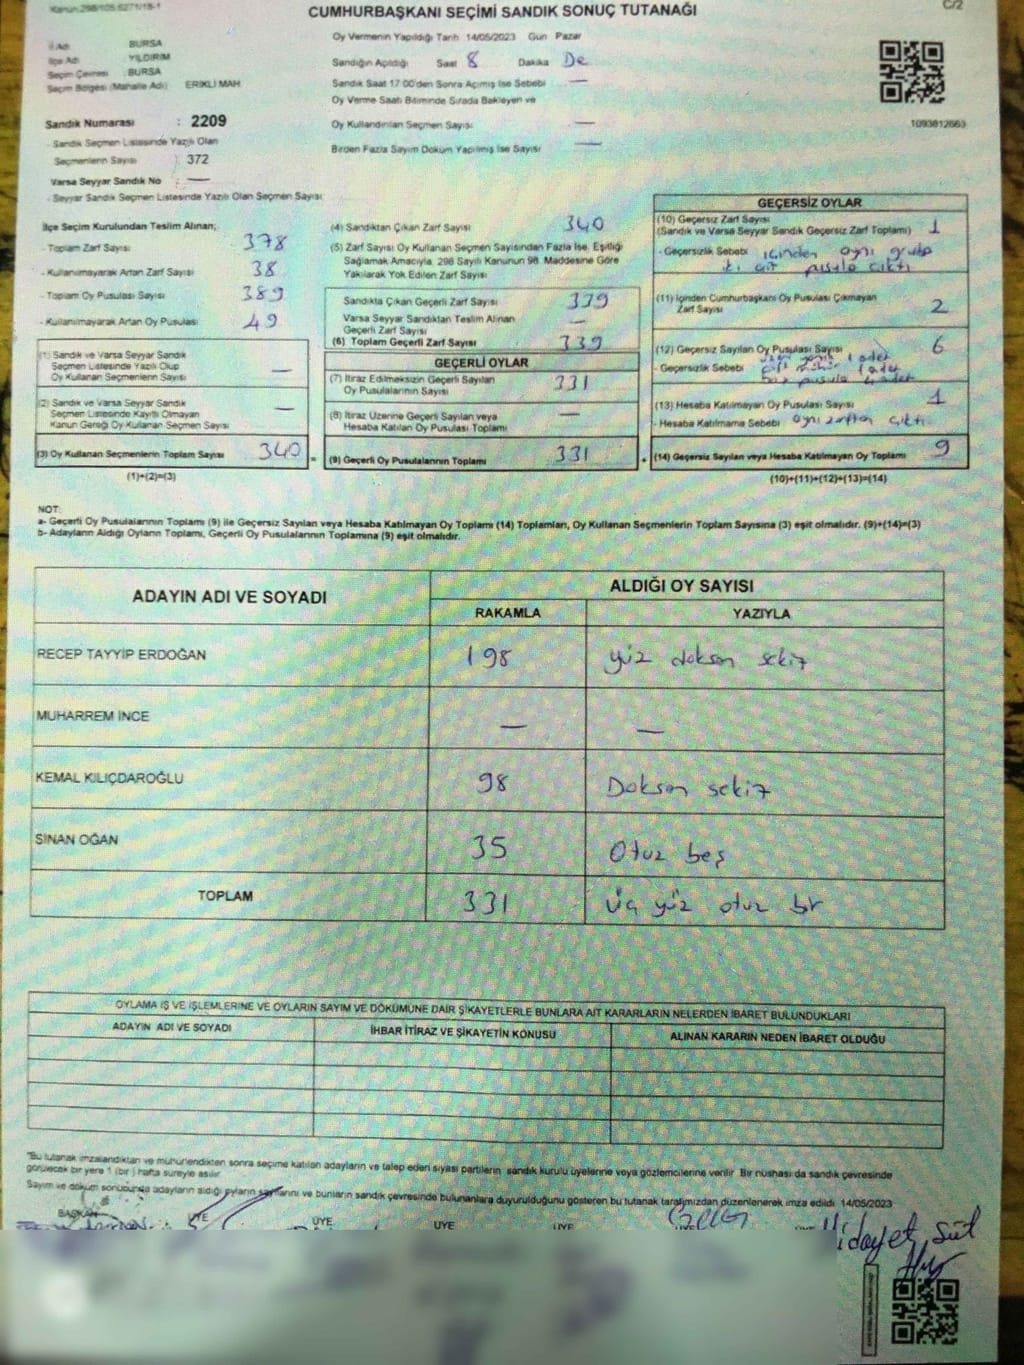 Kanun:298/105;6271/18-1
C/2
CUMHURBAŞKANI SEÇİMİ SANDIK SONUÇ TUTANAĞI
İl Adı BURSA
İlçe Adı YILDIRIM
Seçim Çevresi : BURSA
Seçim Bölgesi (Mahalle Adı) ERİKLİ MAH
Oy Vermenin Yapıldığı Tarih 14/05/2023 Gün Pazar
Sandığın Açıldığı Saat 8 Dakika De
Sandık Saat 17 00'den Sonra Açımış İse Sebebi —
Oy Verme Saati Bitiminde Sırada Bekleyen ve
Oy Kullandırılan Seçmen Sayısı —
Birden Fazla Sayım Döküm Yapılmış İse Sayısı —
1093812663
Sandık Numarası : 2209
- Sandık Seçmen Listesinde Yazılı Olan
Seçmenlerin Sayısı : 372
Varsa Seyyar Sandık No : —
- Seyyar Sandık Seçmen Listesinde Yazılı Olan Seçmen Sayısı
İlçe Seçim Kurulundan Teslim Alınan;
- Toplam Zarf Sayısı 378
- Kullanılmayarak Artan Zarf Sayısı 38
- Toplam Oy Pusulası Sayısı 389
- Kullanılmayarak Artan Oy Pusulası 49
(1) Sandık ve Varsa Seyyar Sandık
Seçmen Listesinde Yazılı Olup
Oy Kullanan Seçmenlerin Sayısı —
(2) Sandık ve Varsa Seyyar Sandık
Seçmen Listesinde Kayıtlı Olmayan
Kanun Gereği Oy Kullanan Seçmen Sayısı —
(3) Oy Kullanan Seçmenlerin Toplam Sayısı 340
(1)+(2)=(3)
(4) Sandıktan Çıkan Zarf Sayısı 340
(5) Zarf Sayısı Oy Kullanan Seçmen Sayısından Fazla İse, Eşitliği
Sağlamak Amacıyla, 298 Sayılı Kanunun 98. Maddesine Göre
Yakılarak Yok Edilen Zarf Sayısı
Sandıkta Çıkan Geçerli Zarf Sayısı 339
Varsa Seyyar Sandıktan Teslim Alınan
Geçerli Zarf Sayısı —
(6) Toplam Geçerli Zarf Sayısı 339
GEÇERLİ OYLAR
(7) İtiraz Edilmeksizin Geçerli Sayılan
Oy Pusulalarının Sayısı 331
(8) İtiraz Üzerine Geçerli Sayılan veya
Hesaba Katılan Oy Pusulası Toplamı —
(9) Geçerli Oy Pusulalarının Toplamı 331
GEÇERSİZ OYLAR
(10) Geçersiz Zarf Sayısı
(Sandık ve Varsa Seyyar Sandık Geçersiz Zarf Toplamı) 1
- Geçersizlik Sebebi içinden aynı grup
iki çift pusula çıktı
(11) İçinden Cumhurbaşkanı Oy Pusulası Çıkmayan
Zarf Sayısı 2
(12) Geçersiz Sayılan Oy Pusulası Sayısı 6
- Geçersizlik Sebebi 1 adet
çift mühür 1 adet
boş pusula 4 adet
(13) Hesaba Katılmayan Oy Pusulası Sayısı 1
- Hesaba Katılmama Sebebi aynı zarftan çıktı
(14) Geçersiz Sayılan veya Hesaba Katılmayan Oy Toplamı 9
(10)+(11)+(12)+(13)=(14)
NOT:
a- Geçerli Oy Pusulalarının Toplamı (9) ile Geçersiz Sayılan veya Hesaba Katılmayan Oy Toplamı (14) Toplamları, Oy Kullanan Seçmenlerin Toplam Sayısına (3) eşit olmalıdır. (9)+(14)=(3)
b- Adayların Aldığı Oyların Toplamı, Geçerli Oy Pusulalarının Toplamına (9) eşit olmalıdır.
ADAYIN ADI VE SOYADI ALDIĞI OY SAYISI
RAKAMLA YAZIYLA
RECEP TAYYİP ERDOĞAN 198 yüz doksan sekiz
MUHARREM İNCE — —
KEMAL KILIÇDAROĞLU 98 Doksan sekiz
SİNAN OĞAN 35 Otuz beş
TOPLAM 331 üç yüz otuz bir
OYLAMA İŞ VE İŞLEMLERİNE VE OYLARIN SAYIM VE DÖKÜMÜNE DAİR ŞİKAYETLERLE BUNLARA AİT KARARLARIN NELERDEN İBARET BULUNDUKLARI
ADAYIN ADI VE SOYADI İHBAR İTİRAZ VE ŞİKAYETİN KONUSU ALINAN KARARIN NEDEN İBARET OLDUĞU
*Bu tutanak imzalandıktan ve mühürlendikten sonra seçime katılan adayların ve talep eden siyasi partilerin sandık kurulu üyelerine veya gözlemcilerine verilir. Bir nüshası da sandık çevresinde
görülecek bir yere 1 (bir) hafta süreyle asılır.
Sayım ve döküm sonucunda adayların aldığı oyların sayılarını ve bunların sandık çevresinde bulunanlara duyurulduğunu gösteren bu tutanak tarafımızdan düzenlenerek imza edildi 14/05/2023
BAŞKAN ÜYE ÜYE ÜYE ÜYE
Hidayet Süt